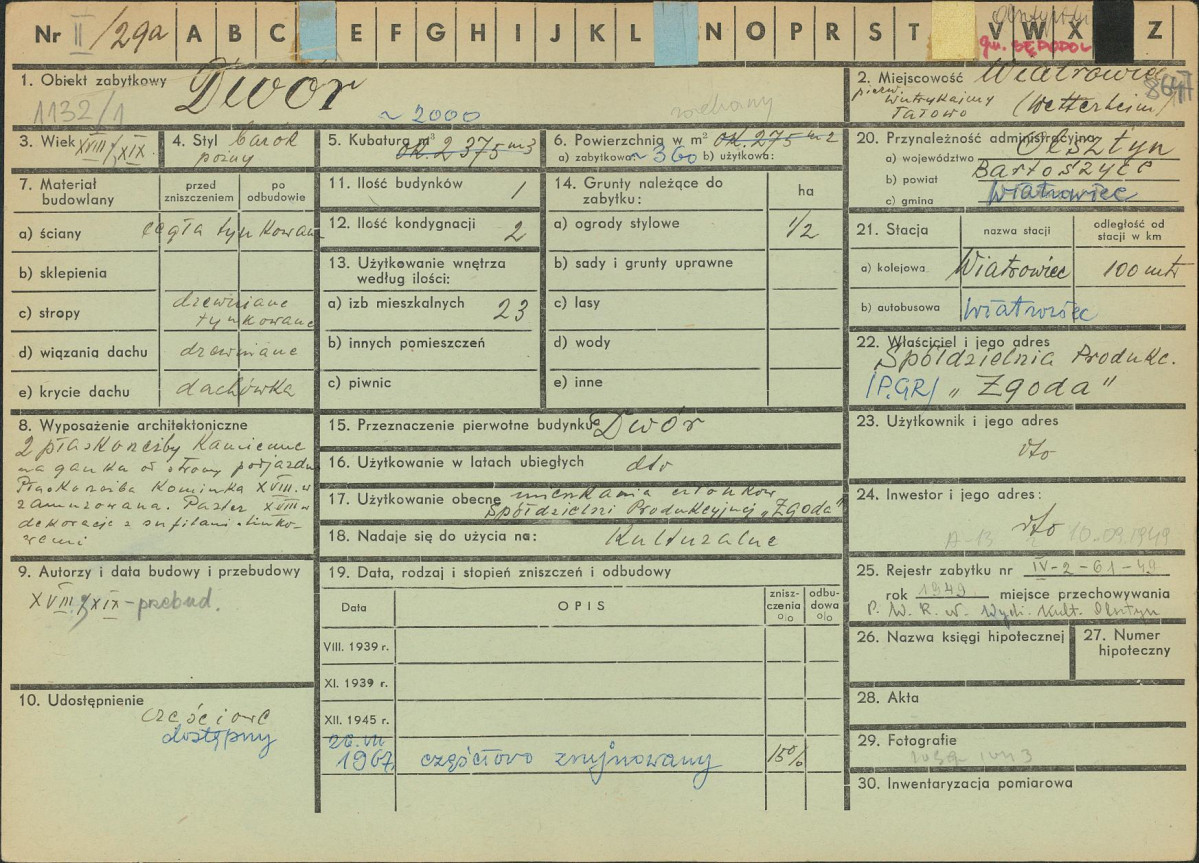 Nr II/29a A B C E F G H I J K L N O P R S T V W X Z
gm. SĘPOPOL
1. Obiekt zabytkowy Dwór
1132/1
~ 2000
2. Miejscowość Wiatrowiec
pierw.
Tatowo (Wetterheim)
3. Wiek XVIII/XIX.
4. Styl barok
późny
5. Kubatura m³ ok. 2 375 m3
6. Powierzchnia w m² ok. 275 m2
a) zabytkowa: ~ 360 b) użytkowa:
20. Przynależność administracyjna
a) województwo Olsztyn
b) powiat Bartoszyce
c) gmina Wiatrowiec
7. Materiał budowlany
przed zniszczeniem
po odbudowie
a) ściany cegła tynkowana
b) sklepienia
c) stropy drewniane
tynkowane
d) wiązania dachu drewniane
e) krycie dachu dachówka
11. Ilość budynków 1
12. Ilość kondygnacji 2
13. Użytkowanie wnętrza
według ilości:
a) izb mieszkalnych 23
b) innych pomieszczeń
c) piwnic
14. Grunty należące do
zabytku:
ha
a) ogrody stylowe 1/2
b) sady i grunty uprawne
c) lasy
d) wody
e) inne
21. Stacja
nazwa stacji
odległość od
stacji w km
a) kolejowa Wiatrowiec 100 mtr
b) autobusowa Wiatrowiec
22. Właściciel i jego adres
Spółdzielnia Produkc.
/P.GR/ „Zgoda"
8. Wyposażenie architektoniczne
2 płaskorzeźby kamienne
na ganku od strony podjazdu
Płaskorzeźba kominka XVIII w
zamurowana. XVIII w
15. Przeznaczenie pierwotne budynku Dwór
16. Użytkowanie w latach ubiegłych dto
17. Użytkowanie obecne mieszkania członków
Spółdzielni Produkcyjnej „Zgoda"
18. Nadaje się do użycia na: Kulturalne
23. Użytkownik i jego adres
dto
24. Inwestor i jego adres:
dto
A-13 10.09.1949
25. Rejestr zabytku nr IV-2-61-49
rok 1949 miejsce przechowywania
P. W. R. N. Wydz. Kult. Olsztyn
9. Autorzy i data budowy i przebudowy
XVIII/XIX - przebud.
19. Data, rodzaj i stopień zniszczeń i odbudowy
Data
OPIS
znisz-
czenia
o/o
odbu-
dowa
o/o
VIII. 1939 r.
XI. 1939 r.
XII. 1945 r.
1967. częściowo zrujnowany 15%
26. Nazwa księgi hipotecznej
27. Numer
hipoteczny
28. Akta
29. Fotografie
30. Inwentaryzacja pomiarowa
10. Udostępnienie
częściowe
dostępny